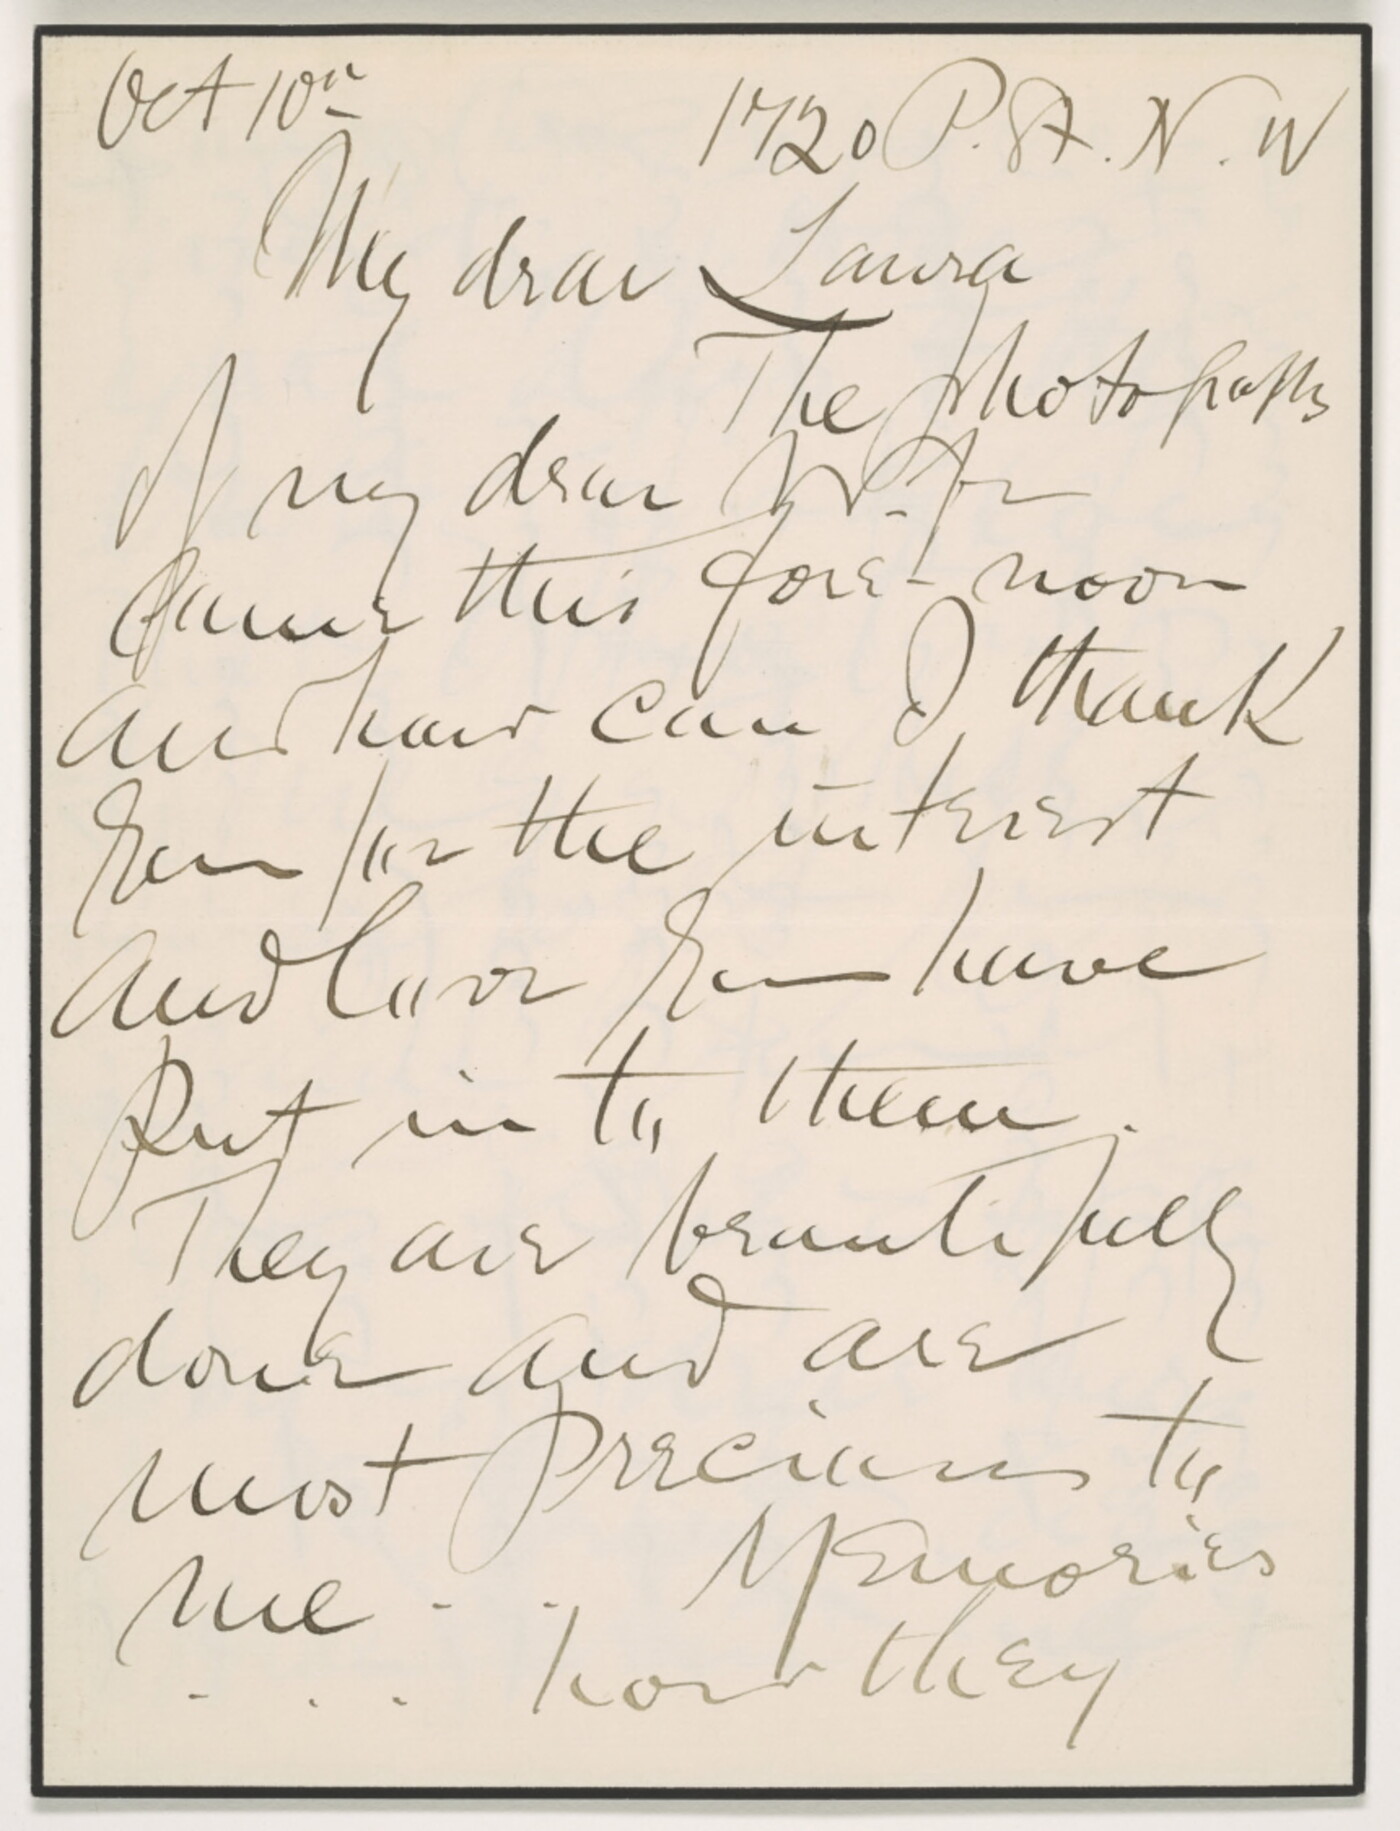 Oct 10th 1720 P. St. N. W
My dear Laura
The photographs
of my dear
came this fore-noon
and how can I thank
you for the interest
and love you have
put in to them.
They are beautifully
done and are
most precious to
me . . Memories
. . . how they